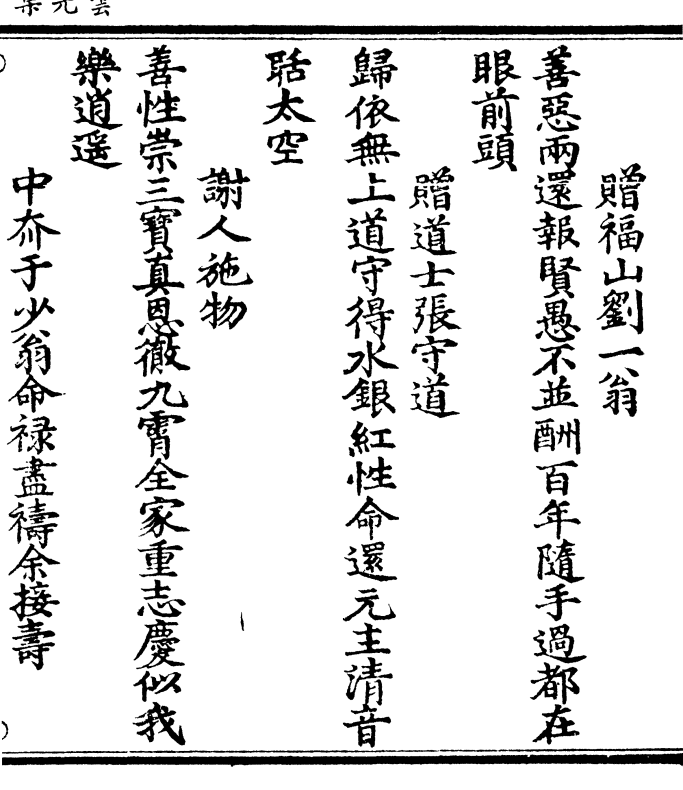 贈福山劉一翁
善惡兩還報賢愚不並酬百年隨手過都在
眼前頭
贈道士張守道
歸依無上道守得水銀紅性命還元主清音
聒太空
謝人施物
善性崇三寶真恩徹九霄全家重志慶似我
樂逍遥
中夼于少翁命禄盡禱余接壽